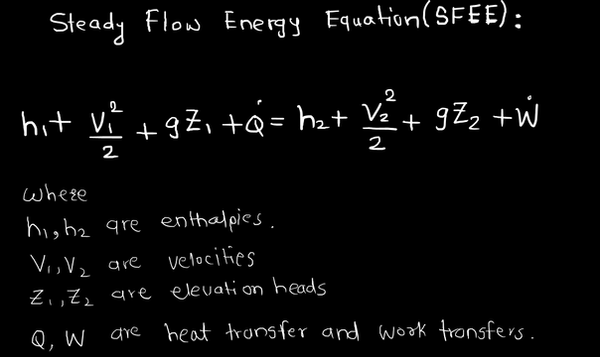 Steady Flow Energy Equation(SFEE):
h₁+ V₁²/2 + gZ₁ + Q̇ = h₂+ V₂²/2 + gZ₂ + Ẇ
where
h₁,h₂ are enthalpies.
V₁,V₂ are velocities
Z₁,Z₂ are elevation heads
Q, W are heat transfer and work transfers.